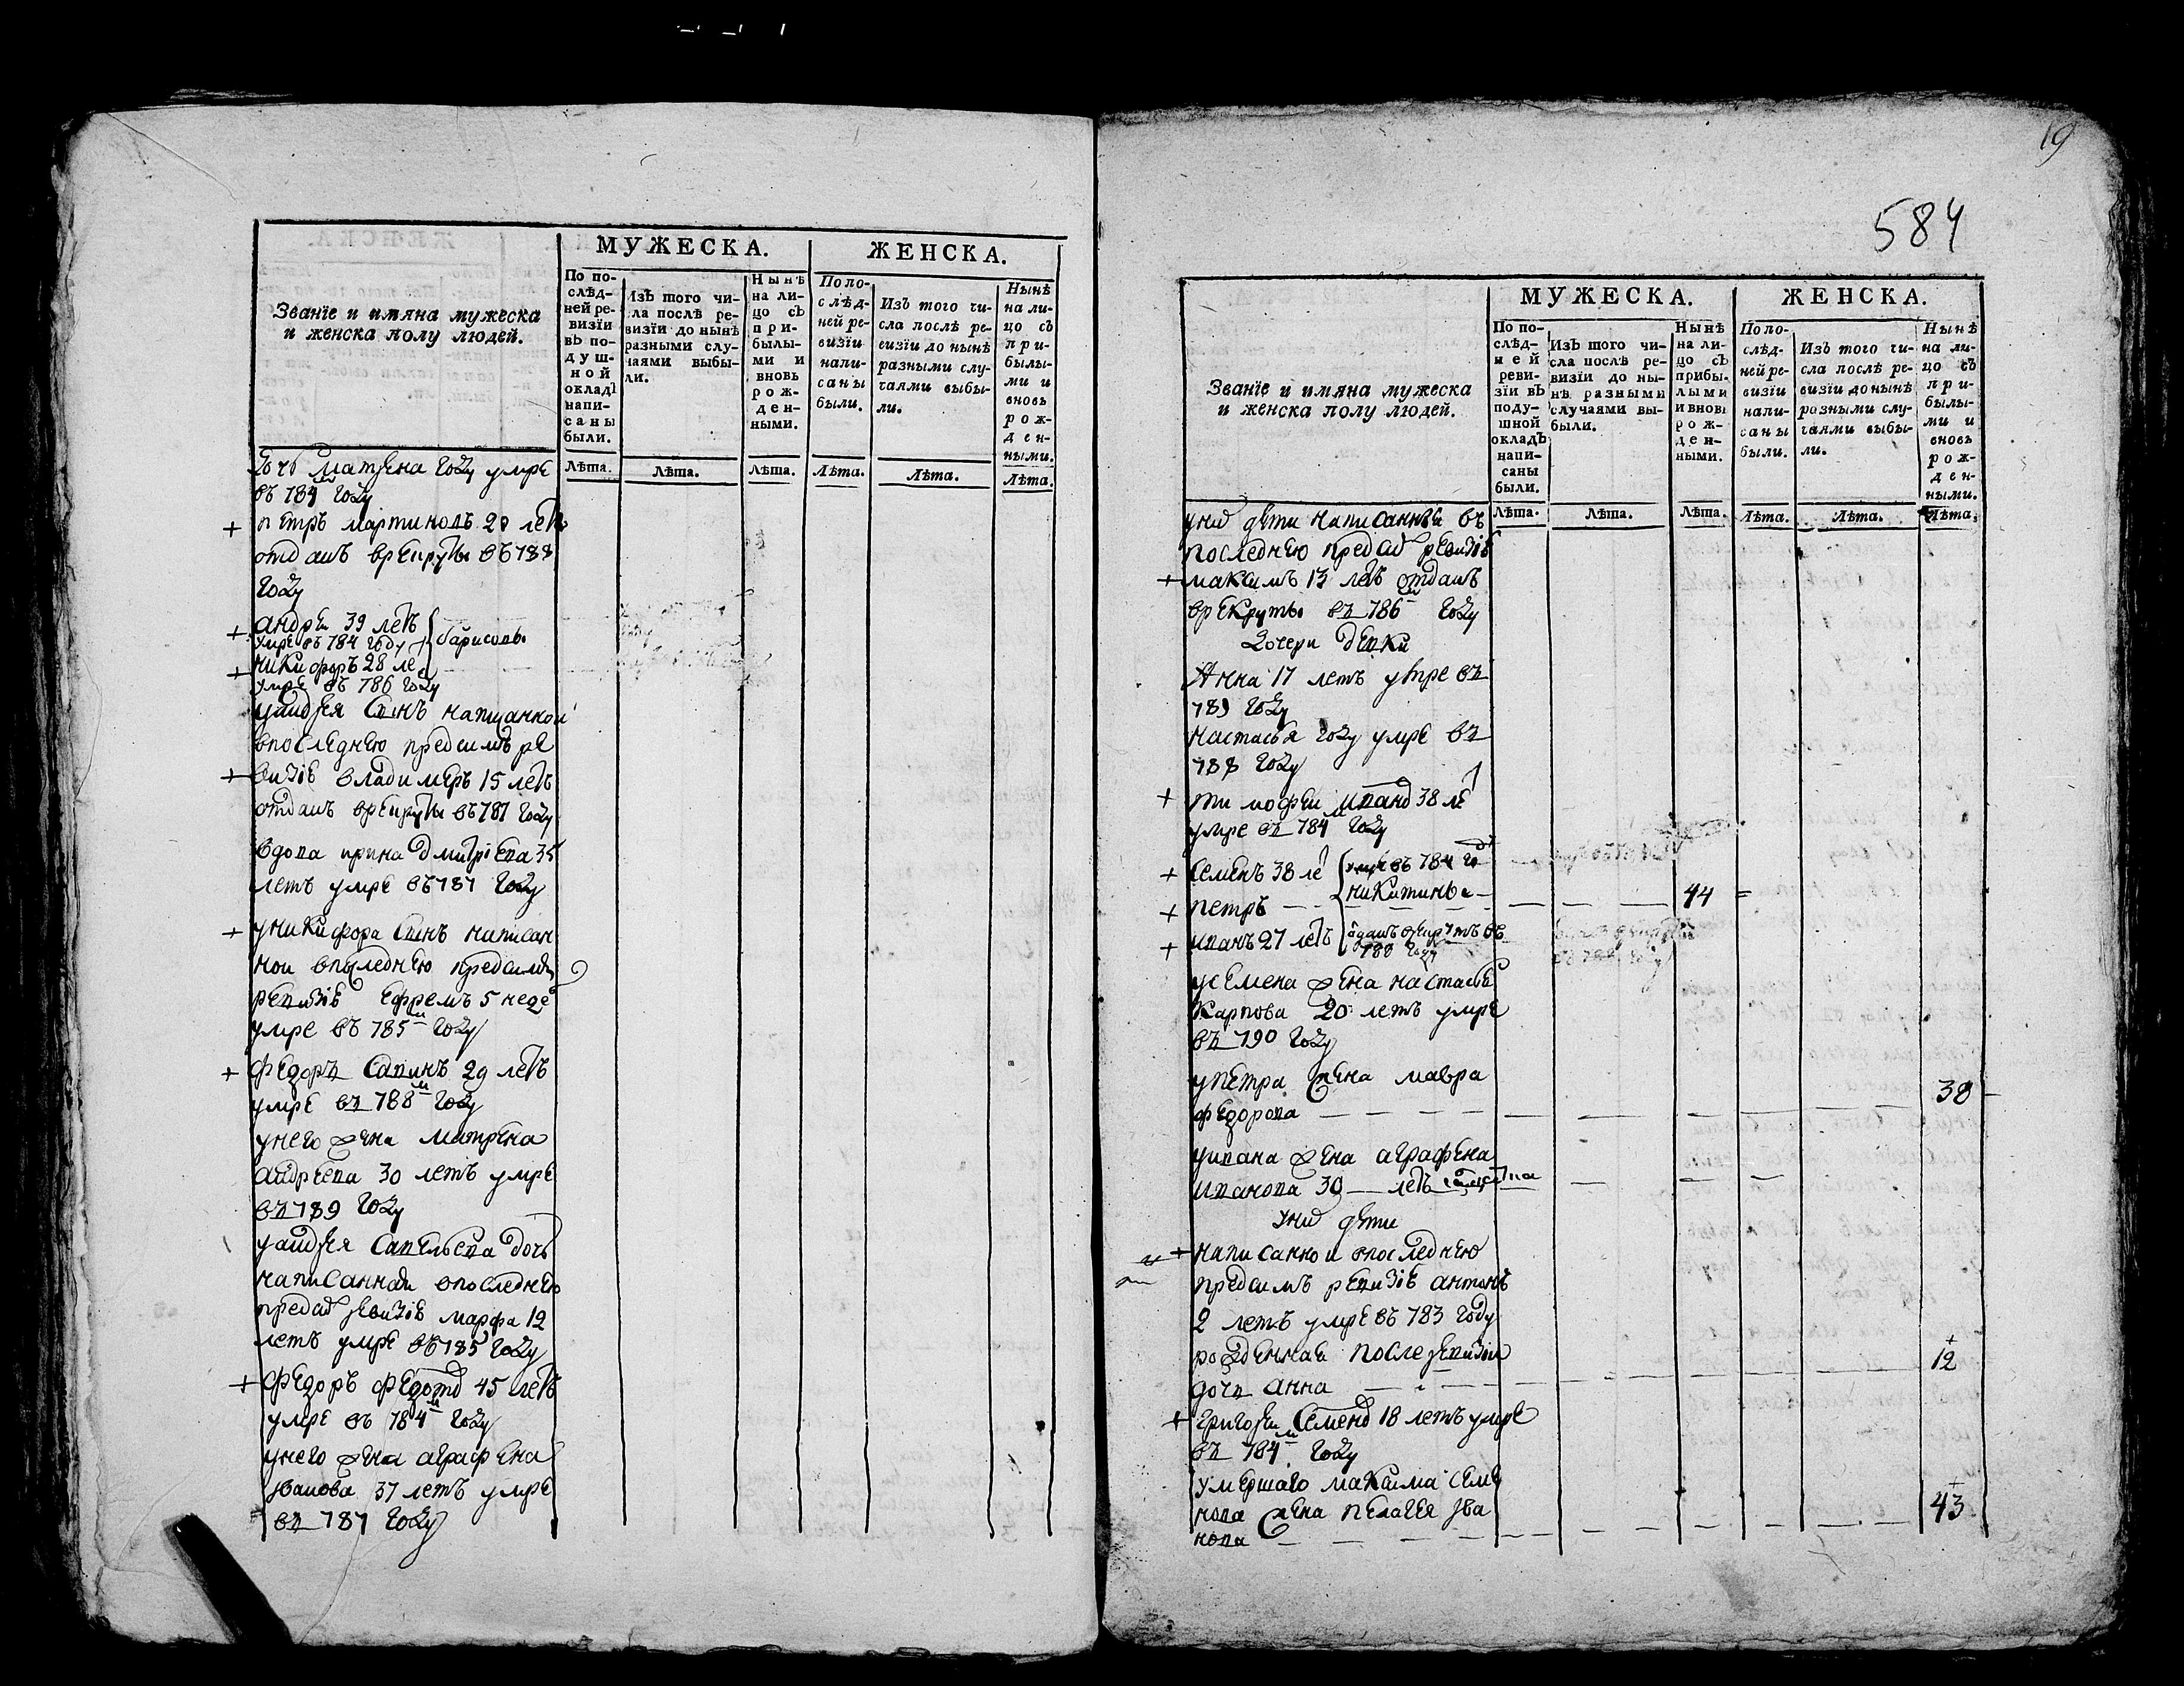 МУЖЕСКА.
ЖЕНСКА.
Званїе и имяна мужеска
и женска полу людей.
По по-
слѣд-
ней ре-
визїи
вЬ по-
душ-
ной
окладЪ
напи-
саны
были.
ИзЪ того чи-
сла послѣ ре-
визїи до нынѣ
разными слу-
чаями выбы-
ли.
Нынѣ
на ли-
цо сЪ
при-
былы-
ми и
вновь
рож-
ден-
ными.
По по-
слѣд-
ней ре-
визїи
напи-
саны
были.
ИзЪ того чи-
сла послѣ ре-
визїи до нынѣ
разными слу-
чаями выбы-
ли.
Нынѣ
на ли-
цо сЪ
при-
былы-
ми и
вновь
рож-
ден-
ными.
Лѣта. Лѣта. Лѣта. Лѣта. Лѣта. Лѣта.
дочь матрена году умре
въ 784м году
+ петръ мартиновъ 20 летъ
отданъ врекруты въ 788
году
+ андрей 39 летъ
умре въ 784 году
борисовы
+ никифоръ 28 ле
умре въ 786 году
уандрея сынъ написанной
впоследнею предсимъ ре
+ визіе владимеръ 15 летъ
отданъ врекруты въ 787 году
вдова ирина дмитріева 35
летъ умре въ 787 году
+ уникифора сынъ написан
ной впоследнею предсимъ
ревизіе ефремъ 5 неде
умре въ 785м году
+ федоръ савинъ 29 летъ
умре въ 788м году
унего жена матрена
андреева 30 летъ умре
въ 789 году
уандрея савельева дочь
написанная впоследнею
предсим ревизіе марфа 12
летъ умре въ 785 году
+ федоръ федотов 45 летъ
умре въ 784м году
унего жена аграфена
іванова 37 летъ умре
въ 787 году
19
584
МУЖЕСКА.
ЖЕНСКА.
Званїе и имяна мужеска
и женска полу людей.
По по-
слѣд-
ней
реви-
зїи вЪ
поду-
шной
окладЪ
напи-
саны
были.
ИзЪ того чи-
сла послѣ ре-
визїи до ны-
нѣ разными
случаями вы-
были.
Нынѣ
на ли-
цо сЪ
прибы-
лыми
и вновь
рож-
ден-
ными.
По по-
слѣд-
ней ре-
визїи
напи-
саны
были.
ИзЪ того чи-
сла послѣ ре-
визїи до нынѣ
разными слу-
чаями выбы-
ли.
Нынѣ
на ли-
цо сЪ
при-
былы-
ми и
вновь
рож-
ден-
ными.
Лѣта. Лѣта. Лѣта. Лѣта. Лѣта. Лѣта.
уних дети написанные въ
последнею предсим ревизіе
+ максимъ 13 летъ отданъ
врекруты въ 786м году
дочери девки
Анна 17 летъ умре въ
789 году
настасья году умре въ
788 году
+ тимофей иванов 38 ле
умре въ 784м году
+ семенъ 38 ле умре въ 784 год
+ петръ никитины 44
+ иванъ 27 летъ
788 году
усемена жена настасья
карпова 20 летъ умре
въ 790 году
упетра жена мавра
федорова 38
уивана жена аграфена
иванова 30 летъ
уних дети
+ написанной впоследнею
предсимъ ревизіе антонъ
2 летъ умре въ 783 году
рожденная после ревизіи
дочь анна 12
+ григорей семенов 18 летъ умре
въ 784м году
умершаго максима семе
нова жена пелагея іва
нова 43